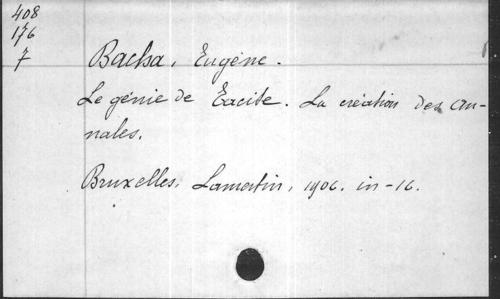 408
176
7
Bacha, Eugène.
Le génie de Tacite. La création des An-
nales.
Bruxelles, Lamertin, 1906. in-16.